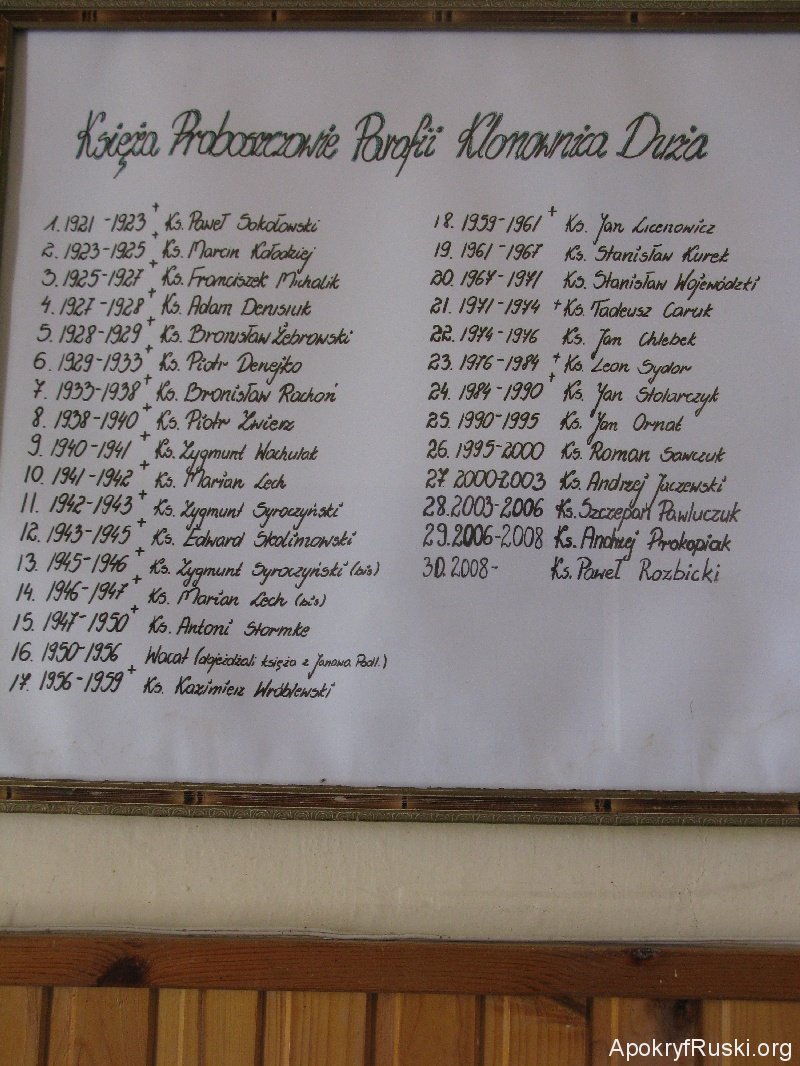 Księża Proboszczowie Parafii Klonownica Duża
1. 1921-1923 + Ks. Paweł Sokołowski
2. 1923-1925 + Ks. Marcin Kołodziej
3. 1925-1927 + Ks. Franciszek Michalik
4. 1927-1928 + Ks. Adam Denisiuk
5. 1928-1929 + Ks. Bronisław Żebrowski
6. 1929-1933 + Ks. Piotr Denejko
7. 1933-1938 + Ks. Bronisław Rachoń
8. 1938-1940 + Ks. Piotr Zwierz
9. 1940-1941 + Ks. Zygmunt Wachulak
10. 1941-1942 + Ks. Marian Lech
11. 1942-1943 + Ks. Zygmunt Syroczyński
12. 1943-1945 + Ks. Edward Skolimowski
13. 1945-1946 + Ks. Zygmunt Syroczyński (bis)
14. 1946-1947 + Ks. Marian Lech (bis)
15. 1947-1950 + Ks. Antoni Starmke
16. 1950-1956 Wacat (dojeżdżali księża z Janowa Podl.)
17. 1956-1959 + Ks. Kazimierz Wróblewski
18. 1959-1961 + Ks. Jan Licenowicz
19. 1961-1967 Ks. Stanisław Kurek
20. 1967-1971 Ks. Stanisław Wojewódzki
21. 1971-1974 + Ks. Tadeusz Caruk
22. 1974-1976 Ks. Jan Chlebek
23. 1976-1984 + Ks. Leon Sydor
24. 1984-1990 + Ks. Jan Stolarczyk
25. 1990-1995 Ks. Jan Ornat
26. 1995-2000 Ks. Roman Sawczuk
27. 2000-2003 Ks. Andrzej Juczewski
28. 2003-2006 Ks. Szczepan Pawluczuk
29. 2006-2008 Ks. Andrzej Prokopiak
30. 2008- Ks. Paweł Rozbicki
ApokryfRuski.org